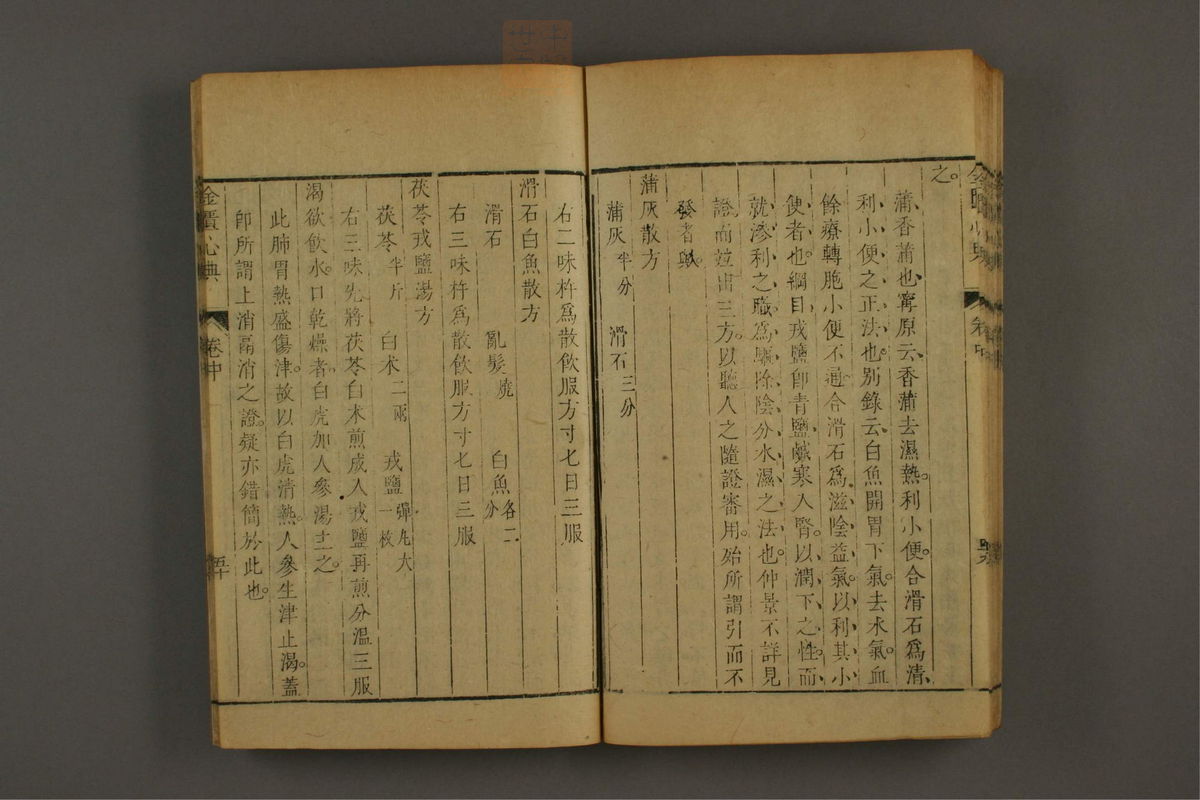 之。
蒲香蒲也寗原云香蒲去濕熱。利小便。合滑石爲清
利小便之正法也。別錄云白魚開胃下氣。去水氣。血
餘療轉胞小便不通合滑石爲滋陰益氣。以利其小
便者也。綱目戎鹽卽青鹽鹹寒入腎。以潤下之性。而
就滲利之職爲驅除陰分水濕之法也仲景不詳見
證而竝出三方。以聽人之隨證審用。殆所謂引而不
發者歟。
蒲灰散方
蒲灰半分 滑石三分
右二味杵爲散飲服方寸匕日三服
滑石白魚散方
滑石 亂髮燒 白魚各二分
右三味杵爲散飲服方寸匕日三服
茯苓戎鹽湯方
茯苓半斤 白朮二兩 戎鹽彈丸大一枚
右三味先將茯苓白朮煎成入戎鹽再煎分溫三服
渴欲飲水。口乾燥者白虎加人參湯主之。
此肺胃熱盛傷津。故以白虎清熱。人參生津止渴。蓋
卽所謂上消膈消之證。疑亦錯簡於此也。
金匱心典 卷中 五十